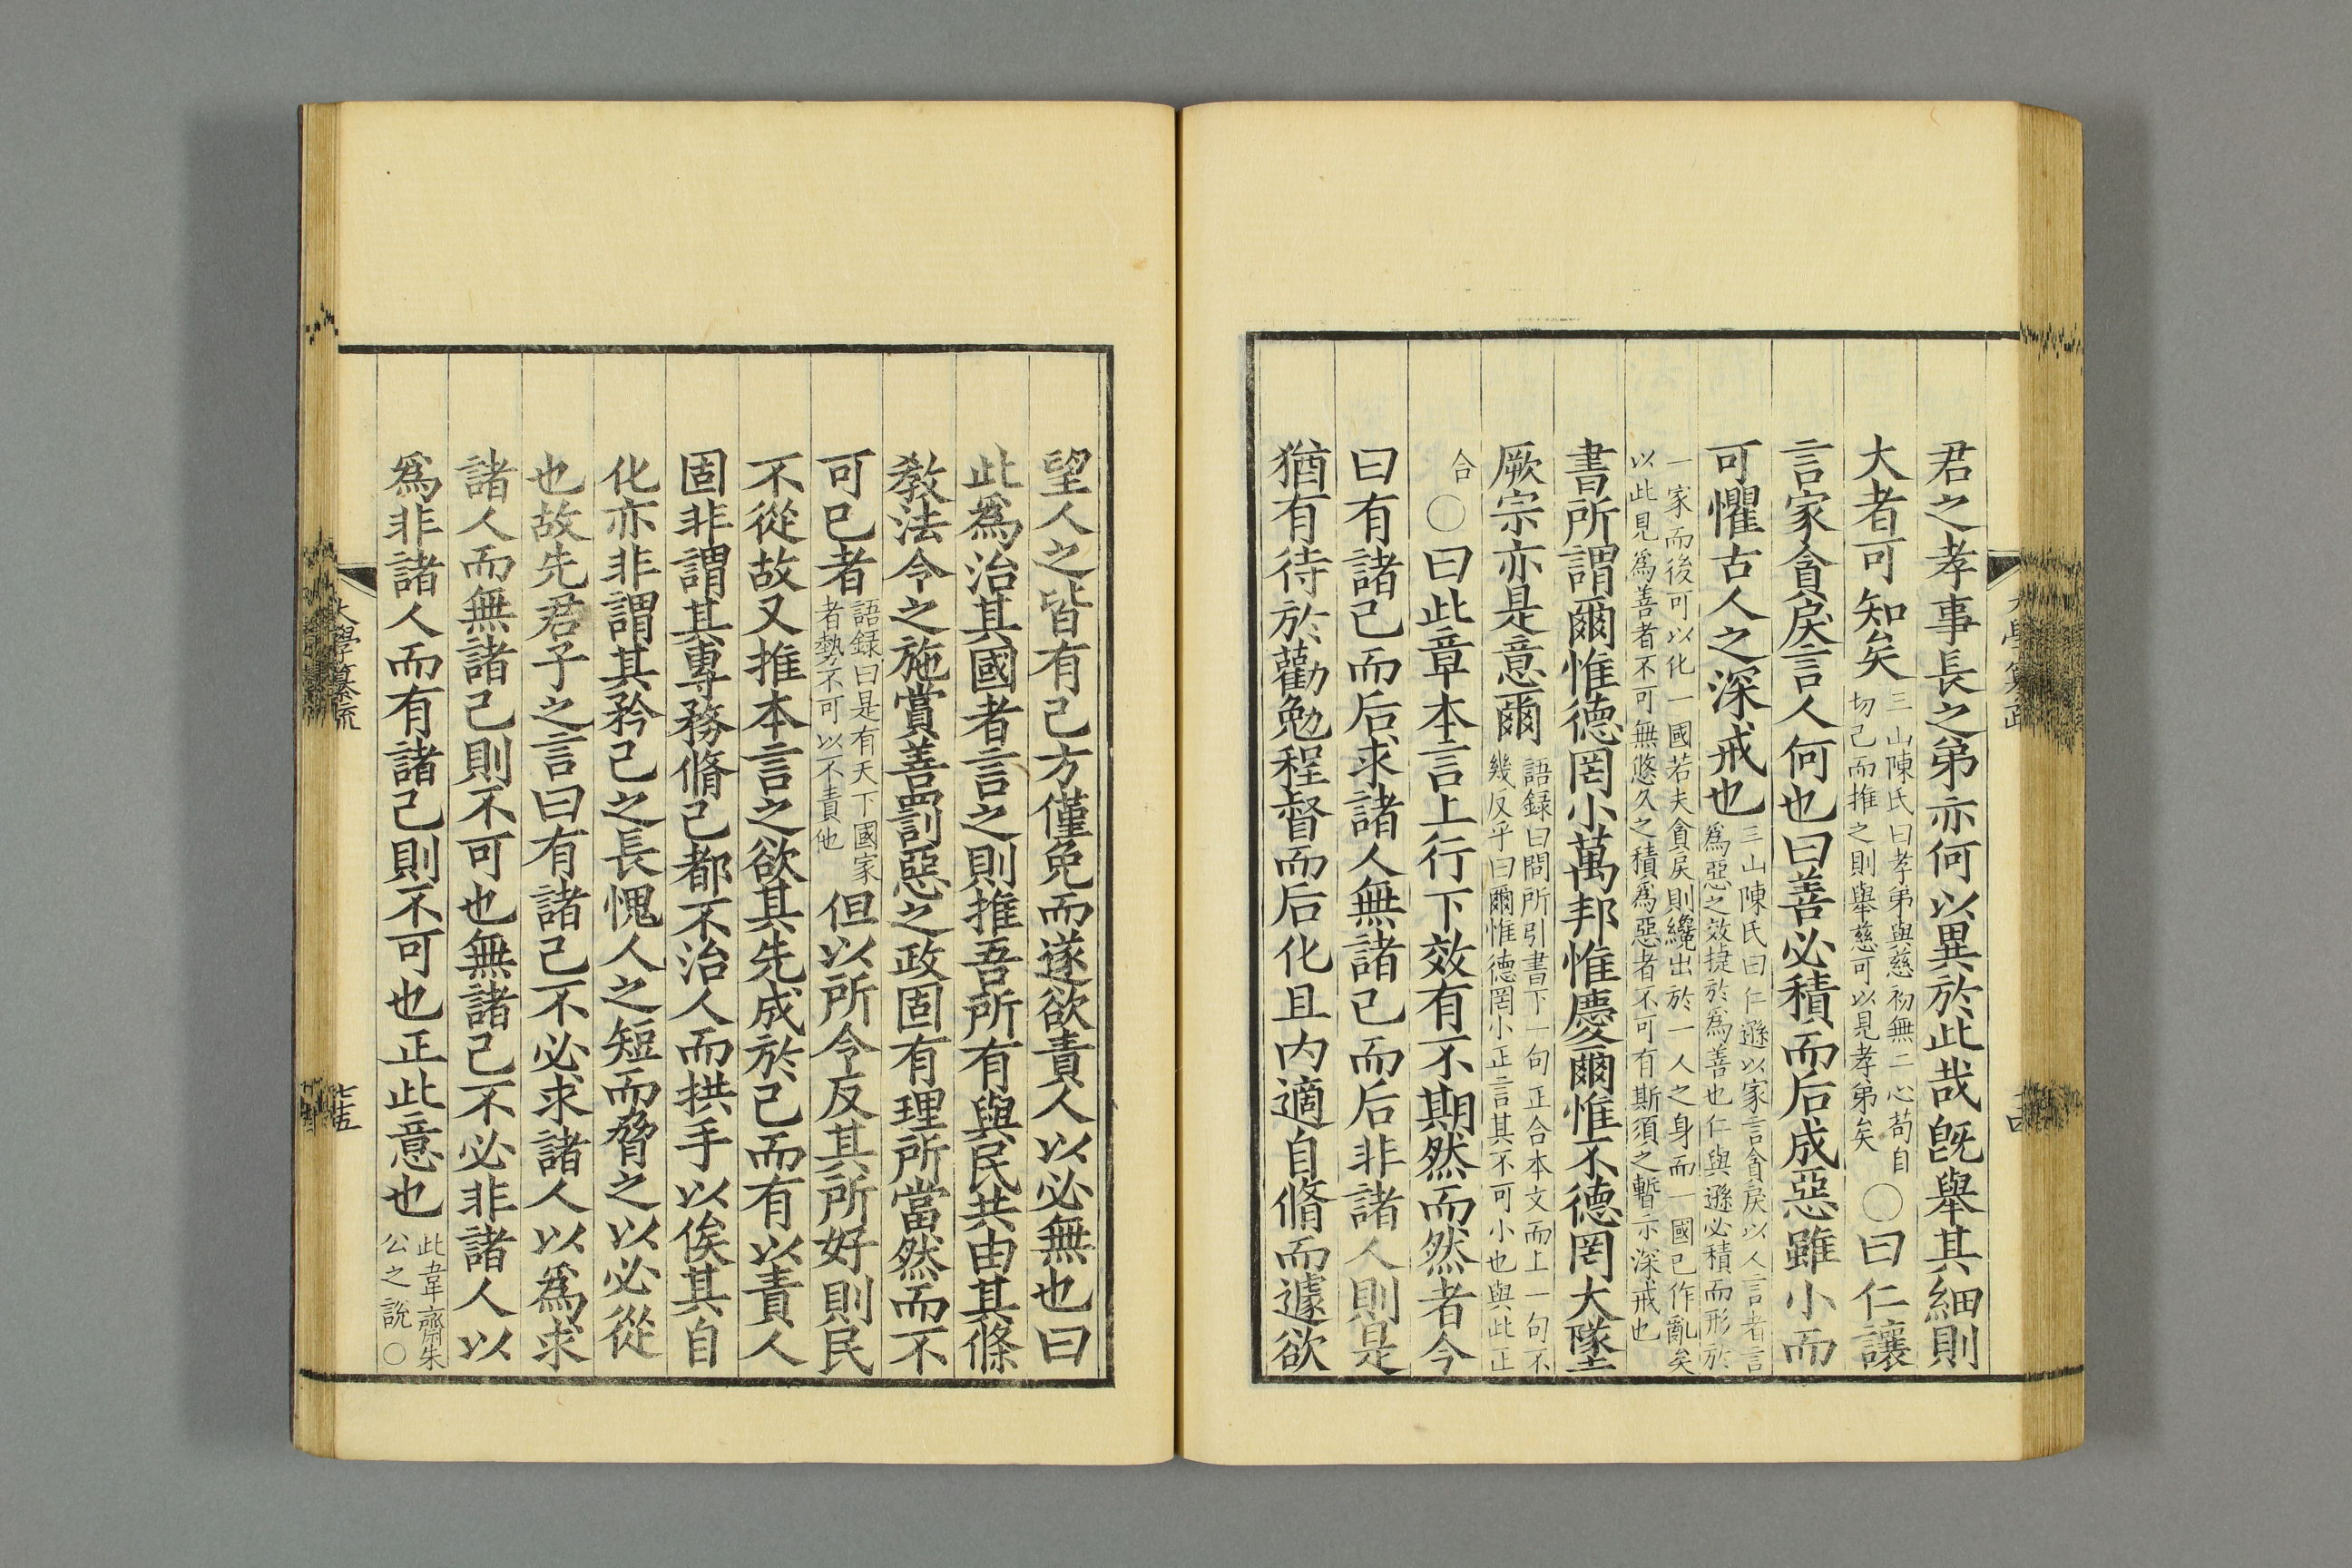 君之孝事長之弟亦何以異於此哉旣舉其細則
大者可知矣三山陳氏曰孝弟與慈初無二心苟自切己而推之則舉慈可以見孝弟矣○曰仁讓
言家貪戾言人何也曰善必積而后成惡雖小而
可懼古人之深戒也三山陳氏曰仁遜以家言貪戾以人言者言爲惡之效捷於爲善也仁與遜必積而形於
一家而後可以化一國若夫貪戾則纔出於一人之身而一國已作亂矣以此見爲善者不可無悠久之積爲惡者不可有斯須之暫示深戒也
書所謂爾惟德罔小萬邦惟慶爾惟不德罔大墜
厥宗亦是意爾語録曰問所引書下一句正合本文而上一句不幾反乎曰爾惟德罔小正言其不可小也與此正
合○曰此章本言上行下效有不期然而然者今
曰有諸己而后求諸人無諸己而后非諸人則是
猶有待於勸勉程督而后化且内適自脩而遽欲
望人之皆有己方僅免而遂欲責人以必無也曰
此爲治其國者言之則推吾所有與民共由其條
敎法令之施賞善罰惡之政固有理所當然而不
可已者語録曰是有天下國家者勢不可以不責他但以所令反其所好則民
不從故又推本言之欲其先成於己而有以責人
固非謂其專務脩己都不治人而拱手以俟其自
化亦非謂其矜己之長愧人之短而脅之以必從
也故先君子之言曰有諸己不必求諸人以爲求
諸人而無諸己則不可也無諸己不必非諸人以
爲非諸人而有諸己則不可也正此意也此韋齋朱公之說○
大學纂疏
七十五